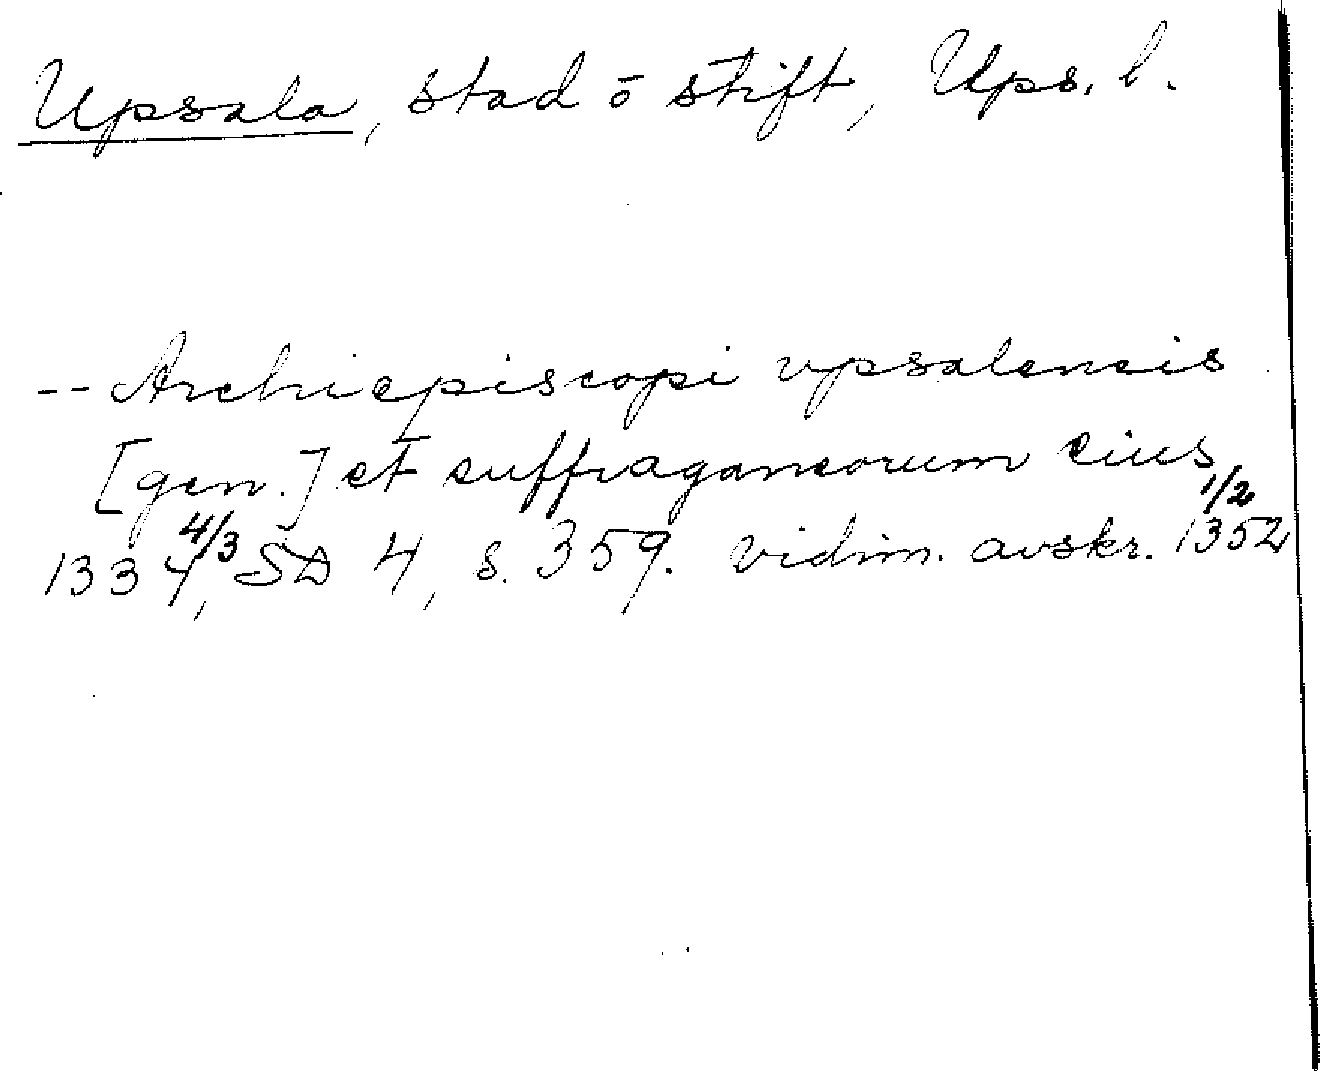 Upsala, stad ō stift, Ups. l.
-- Archiepiscopi vpsalensis
[gen.] et suffraganeorum eius
1334 4/3, SD 4, s. 359. vidim. avskr. 1352 1/2